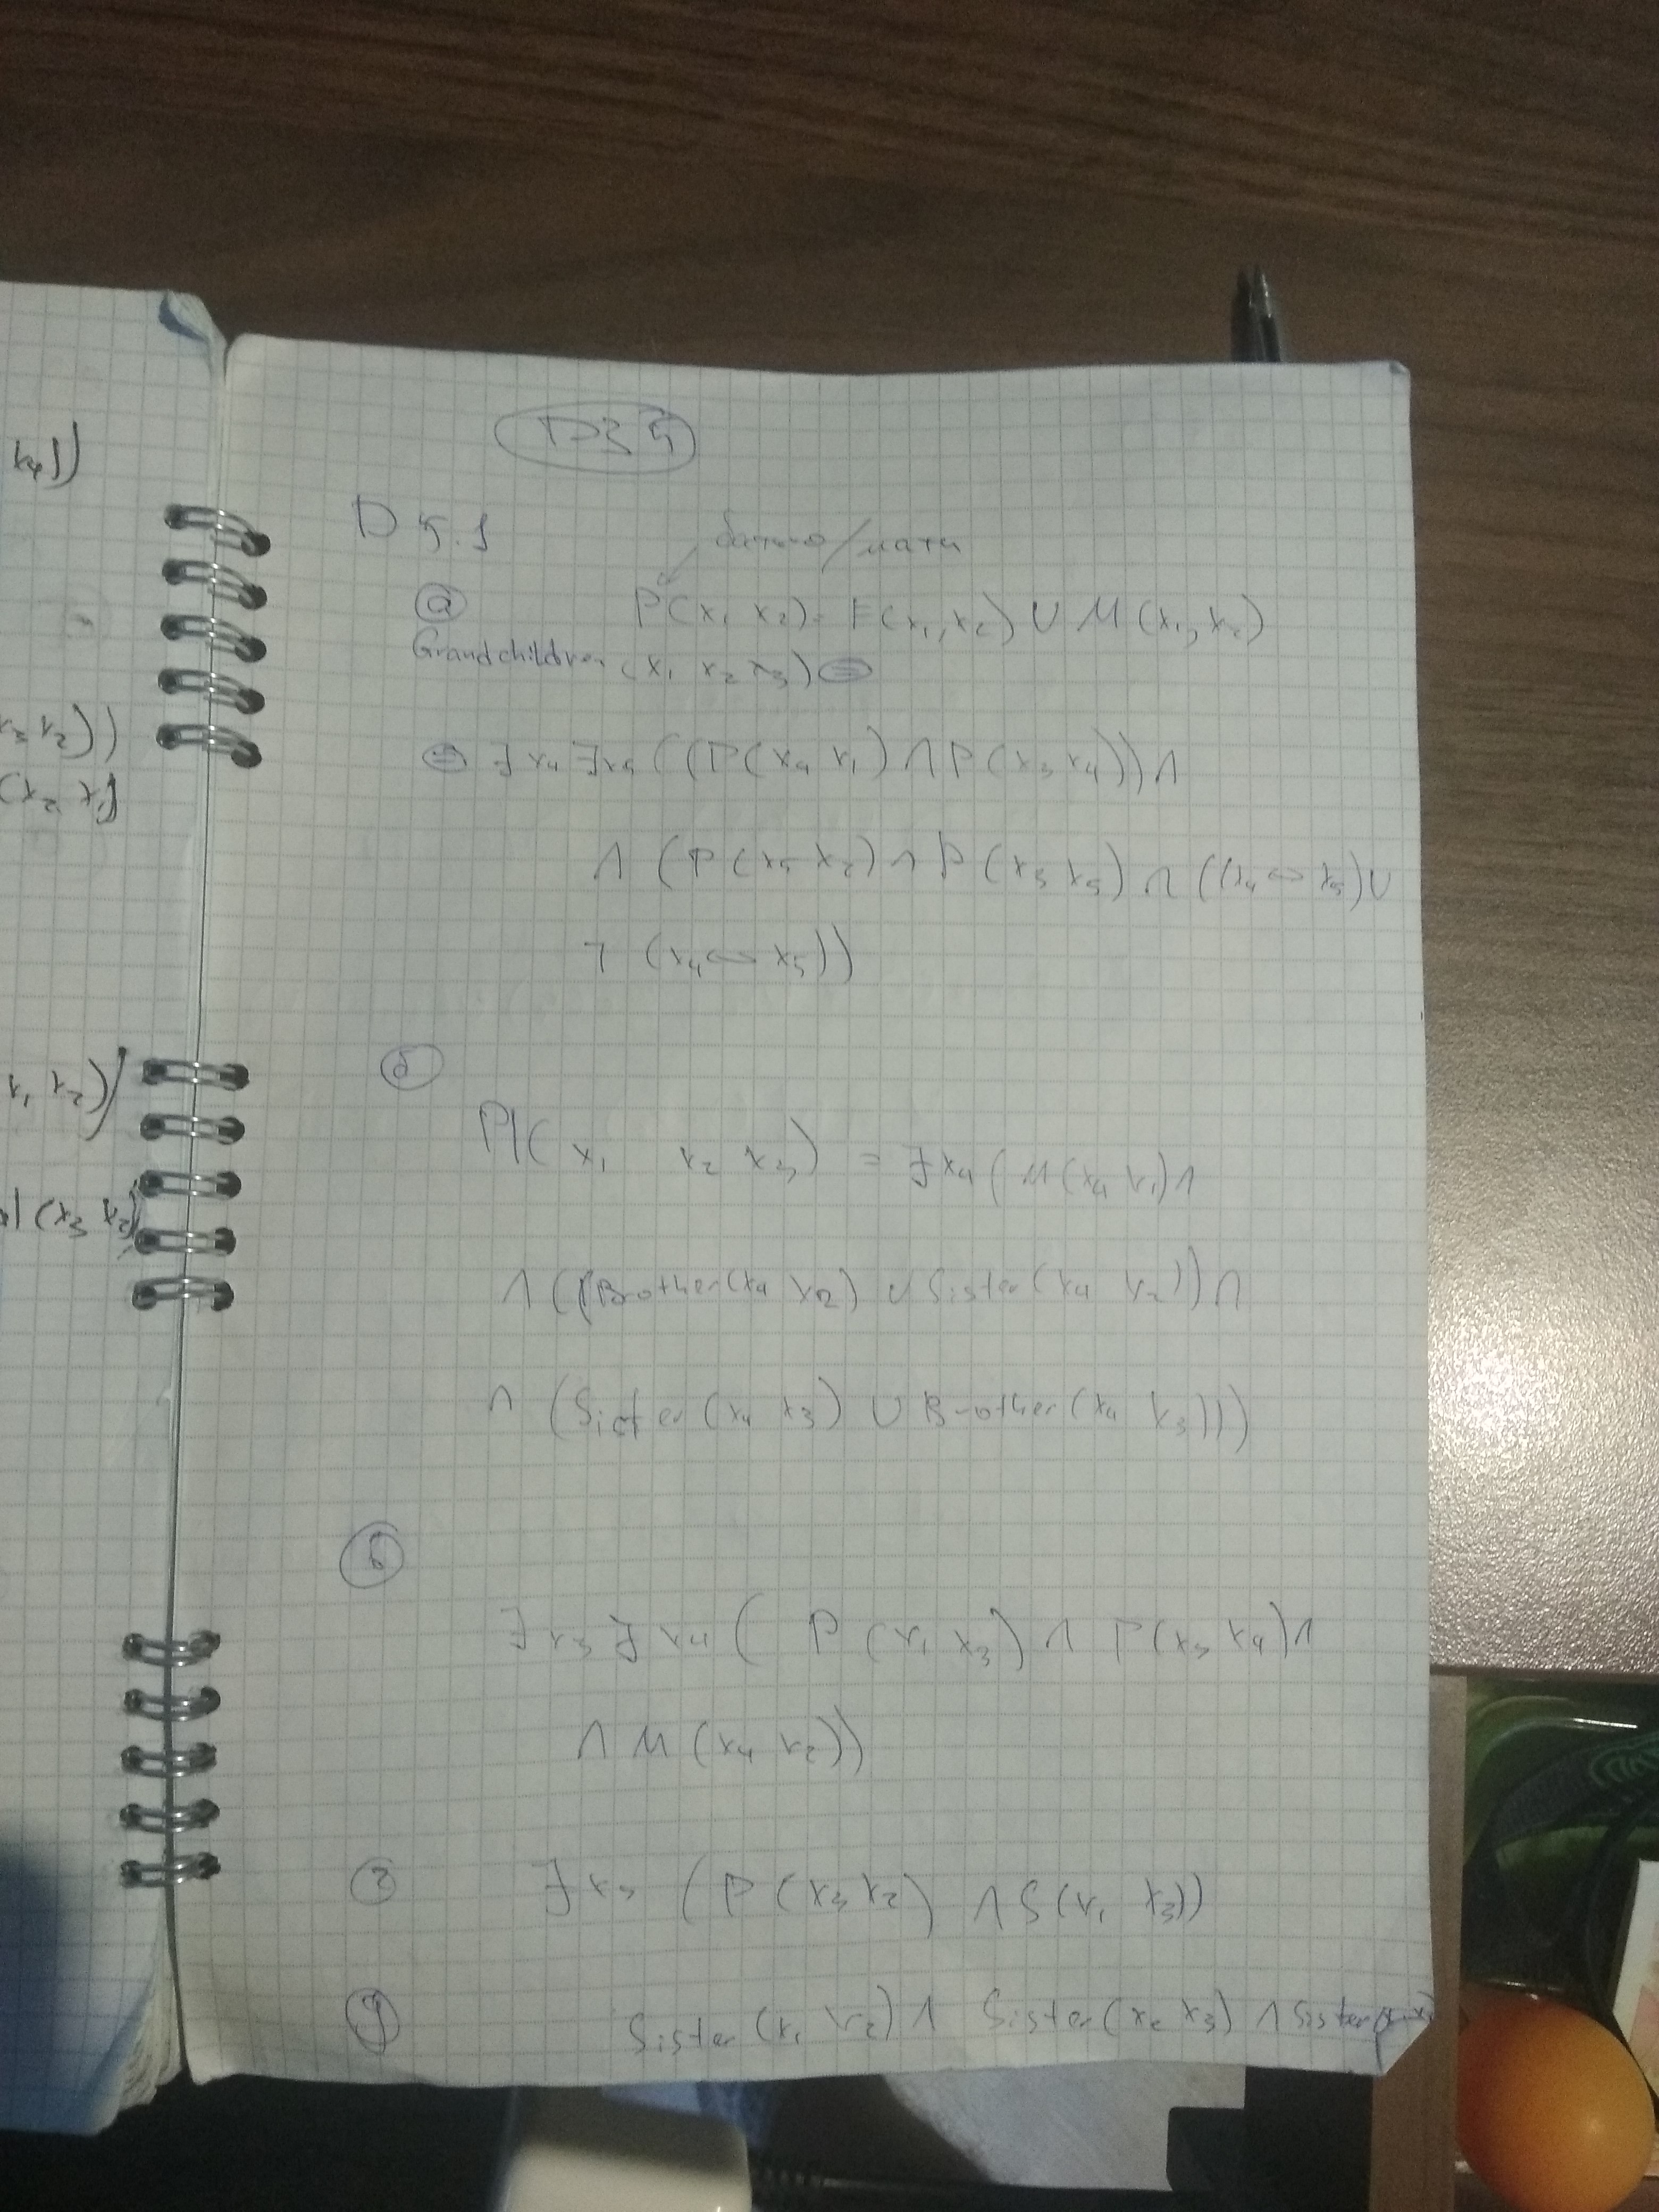 x₄))
x₃ x₂))
(x₂ x₁)
x₁ x₂))
(x₃ x₂)
ДЗ 5
D 5.1
батько/мати
(а) P(x₁ x₂) = F(x₁, x₂) ∪ M(x₁, x₂)
Grandchildren (x₁ x₂ x₃) ⊜
⊜ ∃x₄ ∃x₅ ((P(x₄ x₁) ∧ P(x₃ x₄)) ∧
∧ (P(x₅ x₂) ∧ P(x₃ x₅) ∧ ((x₄ ⇔ x₅) ∪
¬ (x₄ ⇔ x₅))
(б)
Pl(x₁ x₂ x₃) = ∃x₄ (M(x₄ x₁) ∧
∧ ((Brother(x₄ x₂) ∪ Sister(x₄ x₂)) ∧
∧ (Sister(x₄ x₃) ∪ Brother(x₄ x₃)))
(в)
∃x₃ ∃x₄ ( P(x₁ x₃) ∧ P(x₃ x₄) ∧
∧ M(x₄ x₂))
(г) ∃x₃ (P(x₃ x₂) ∧ S(x₁ x₃))
(д) Sister(x₁ x₂) ∧ Sister(x₂ x₃) ∧ Sister